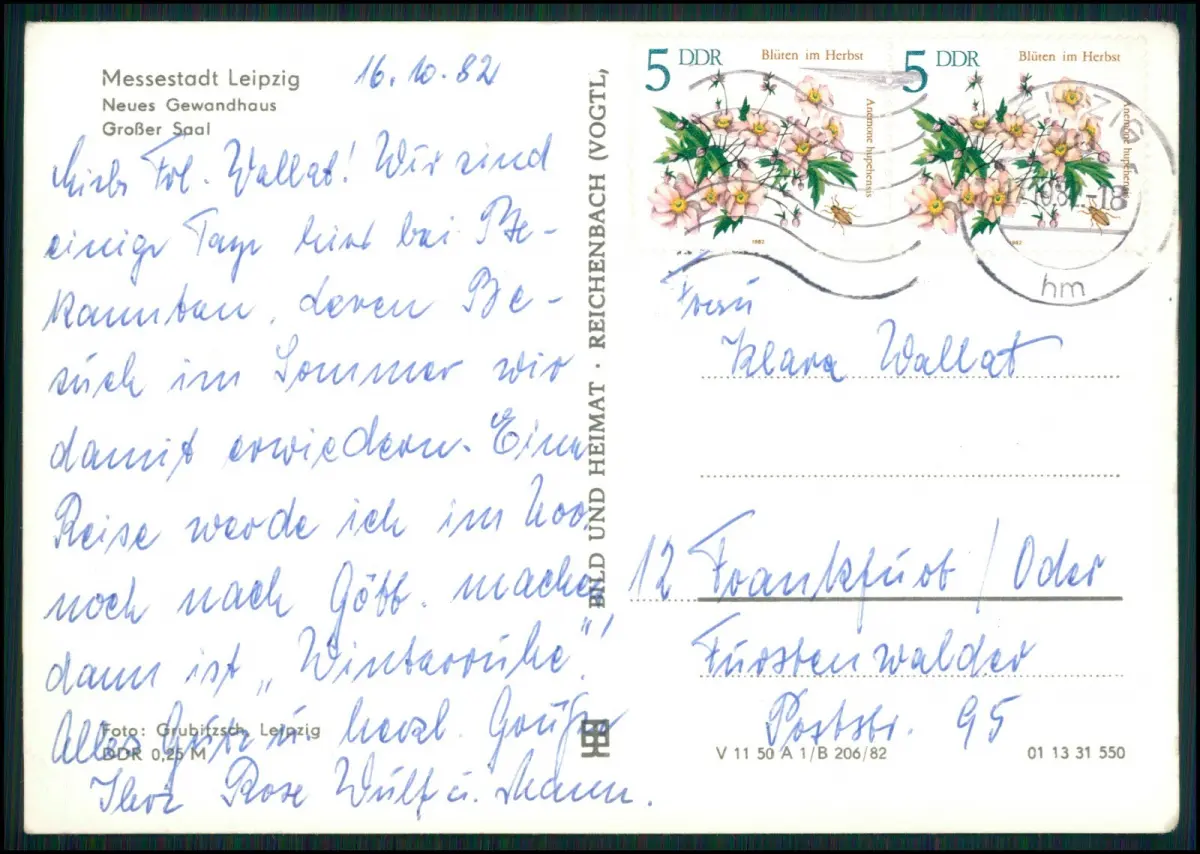 Messestadt Leipzig
Neues Gewandhaus
Großer Saal
16.10.82
Liebe Frl. Wallat! Wir sind
einige Tage hier bei Be-
kannten, deren Be-
such im Sommer wir
damit erwiedern. Eine
Reise werde ich im Nov.
noch nach Gött. machen
dann ist „Winterruhe"!
Alles Gute u. herzl. Grüße
Ihre Rose Wulf u. Mann.
Foto: Grubitzsch, Leipzig
DDR 0,25 M
BILD UND HEIMAT · REICHENBACH (VOGTL,
5 DDR Blüten im Herbst
Anemone hupehensis
1982
5 DDR Blüten im Herbst
Anemone hupehensis
1982
LEIPZIG
17.10.82-18
hm
Frau
Klara Wallat
12 Frankfurt/Oder
Fürstenwalder
Poststr. 95
V 11 50 A 1/B 206/82
01 13 31 550